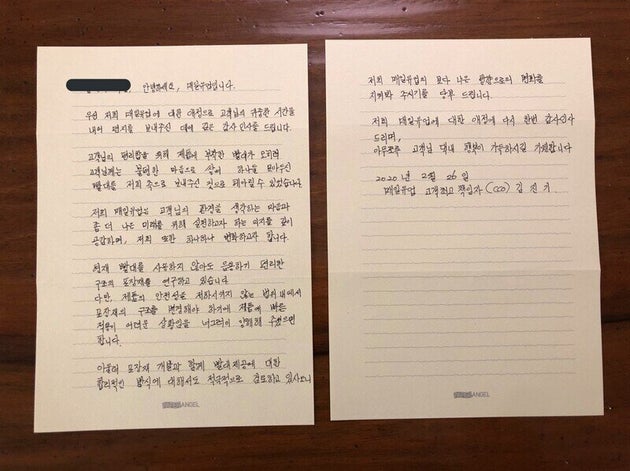 안녕하세요, 매일유업입니다.
우선 저희 매일유업에 대한 애정으로 고객님의 귀중한 시간을
내어 편지를 보내주신 데에 깊은 감사 인사를 드립니다.
고객님의 편리함을 위해 제품에 부착한 빨대가 오히려
고객님께는 불편한 마음으로 쌓여 하나둘 모아두신
빨대를 저희 측으로 보내주신 것으로 헤아릴 수 있었습니다.
저희 매일유업은 고객님의 환경을 생각하는 마음과
좀 더 나은 미래를 위해 실천하고자 하는 의지를 깊이
공감하며, 저희 또한 하나하나 변화하고자 합니다.
현재 빨대를 사용하지 않아도 음용하기 편리한
구조의 포장재를 연구하고 있습니다
다만, 제품의 안전성을 저하시키지 않는 범위 내에서
포장재의 구조를 변경해야 하기에 제품에 빠른
적용이 어려운 상황임을 너그러이 양해해 주셨으면
합니다.
아울러 포장재 개발과 함께 빨대제공에 대한
합리적인 방식에 대해서도 적극적으로 검토하고 있사오니
ANGEL
저희 매일유업의 보다 나은 방향으로의 변화를
지켜봐 주시기를 당부 드립니다.
저희 매일유업에 대한 애정에 다시 한번 감사인사
드리며,
아무쪼록 고객님 댁내 행복이 가득하시길 기원합니다
2020년 2월 26일
매일유업 고객최고책임자(CCO) 김진기
ANGEL